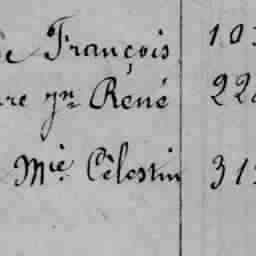 de François 103
re Jn René 228
Mie Célestin 313